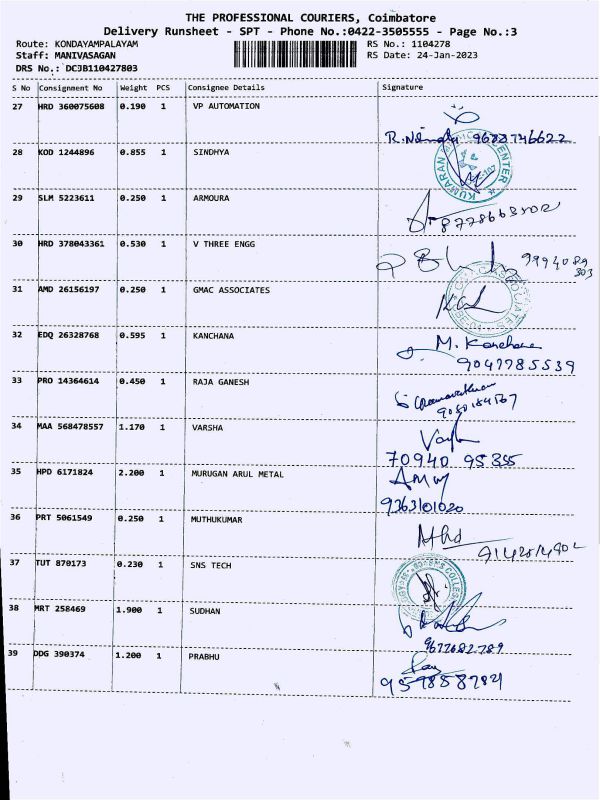 THE PROFESSIONAL COURIERS, Coimbatore
Delivery Runsheet - SPT - Phone No.:0422-3505555 - Page No.:3
Route: KONDAYAMPALAYAM RS No.: 1104278
Staff: MANIVASAGAN RS Date: 24-Jan-2023
DRS No.: DCJB110427803
S No Consignment No Weight PCS Consignee Details Signature
27 HRD 360075608 0.190 1 VP AUTOMATION
28 KOD 1244896 0.855 1 SINDHYA
KUMARAN CENTER
29 SLM 5223611 0.250 1 ARMOURA
30 HRD 378043361 0.530 1 V THREE ENGG
9994089
303
31 AMD 26156197 0.250 1 GMAC ASSOCIATES
32 EDQ 26328768 0.595 1 KANCHANA M. Kanchana
9047785539
33 PRO 14364614 0.450 1 RAJA GANESH
34 MAA 568478557 1.170 1 VARSHA
70940 95355
35 HPD 6171824 2.200 1 MURUGAN ARUL METAL
9363101020
36 PRT 5061549 0.250 1 MUTHUKUMAR
37 TUT 870173 0.230 1 SNS TECH
38 MRT 258469 1.900 1 SUDHAN
9677682789
39 DDG 390374 1.200 1 PRABHU